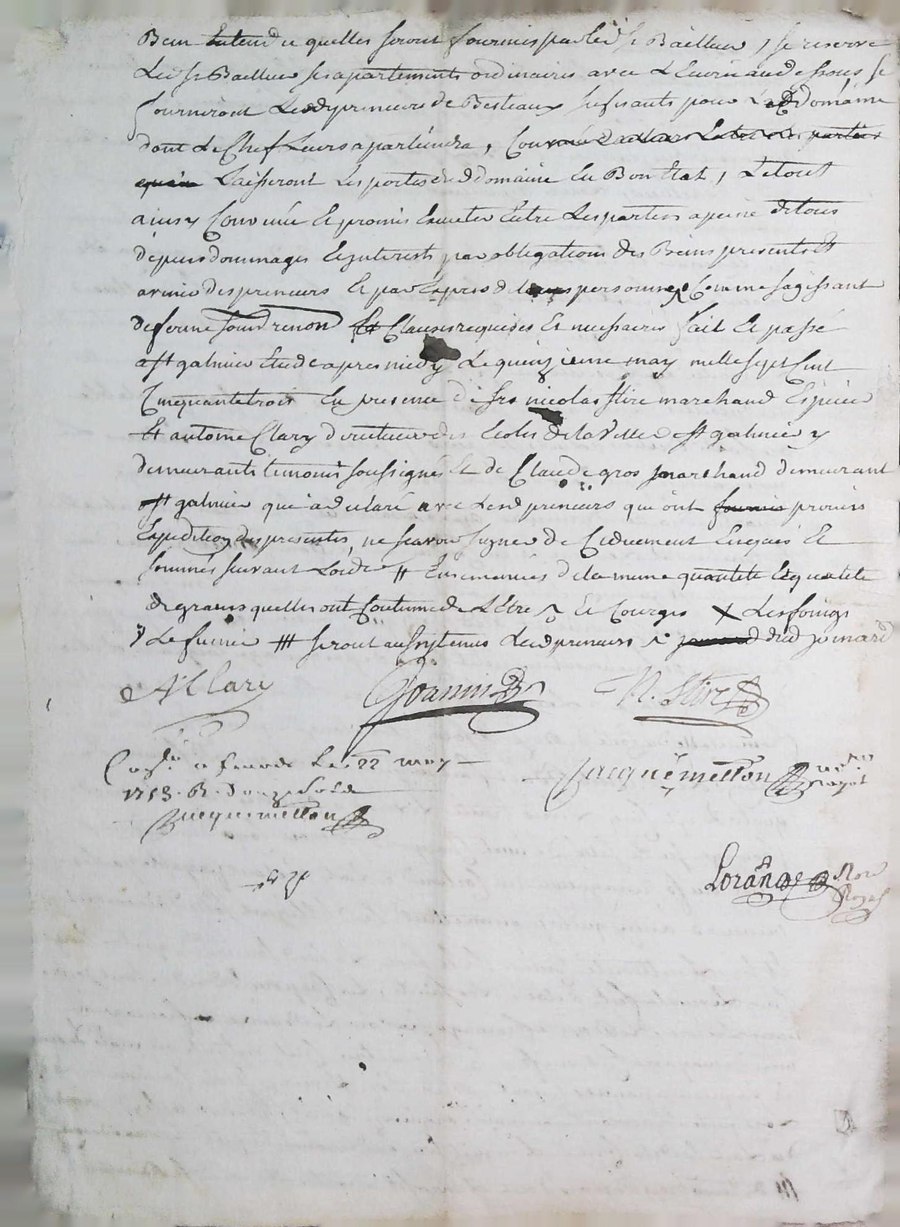 Bien Entendu quelles seront fournies par led sr Bailleur, se reserve
Led sr Bailleur ses apartements ordinaires avec L'Ecurie au dessous, se
fourniront Lesd preneurs de Bestiaux sufisants pour Led Domaine
dont Le Chef Leurs apartiendra, parties
Laisseront Les portes dud Domaine En Bon Etat, Le tout
ainsy Convenu Et promis Executer Entre Les parties a peine de tous
depens dommages Et interests par obligations des Biens presents Et
avenir des preneurs Et par Exprès de personnes Comme s'agissant
de ferme Et Clauses requises Et necessaires fait Et passé
a St galmier Etude apres midy Le quinzieme may mille sept Cent
Cinquante trois En presence de Srs nicolas Stire marchand Epicier
Et antoine Clary directeur des Ecoles de la Ville de St galmier y
demeurants temoins soussignés Et de Claude gros marchand demeurant
St galmier qui a declaré avec Lesd preneurs qui ont fournis promis
Expedition des presentes, ne scavoir signer de Ce Enquis Et
sommés suivant Lord # Ensemencées de la meme quantité Et qualité
de grains quelles ont Coutume de L'Etre Et Courges X Les foings
y Le fumier # seront aussy tenus Lesd preneurs dud joinard
A Clary Joannin N. Stire
a le 22 may Jacquemetton no.re royal
1753. R. Douze sols
Jacquemetton
Lorange Nore
Royal